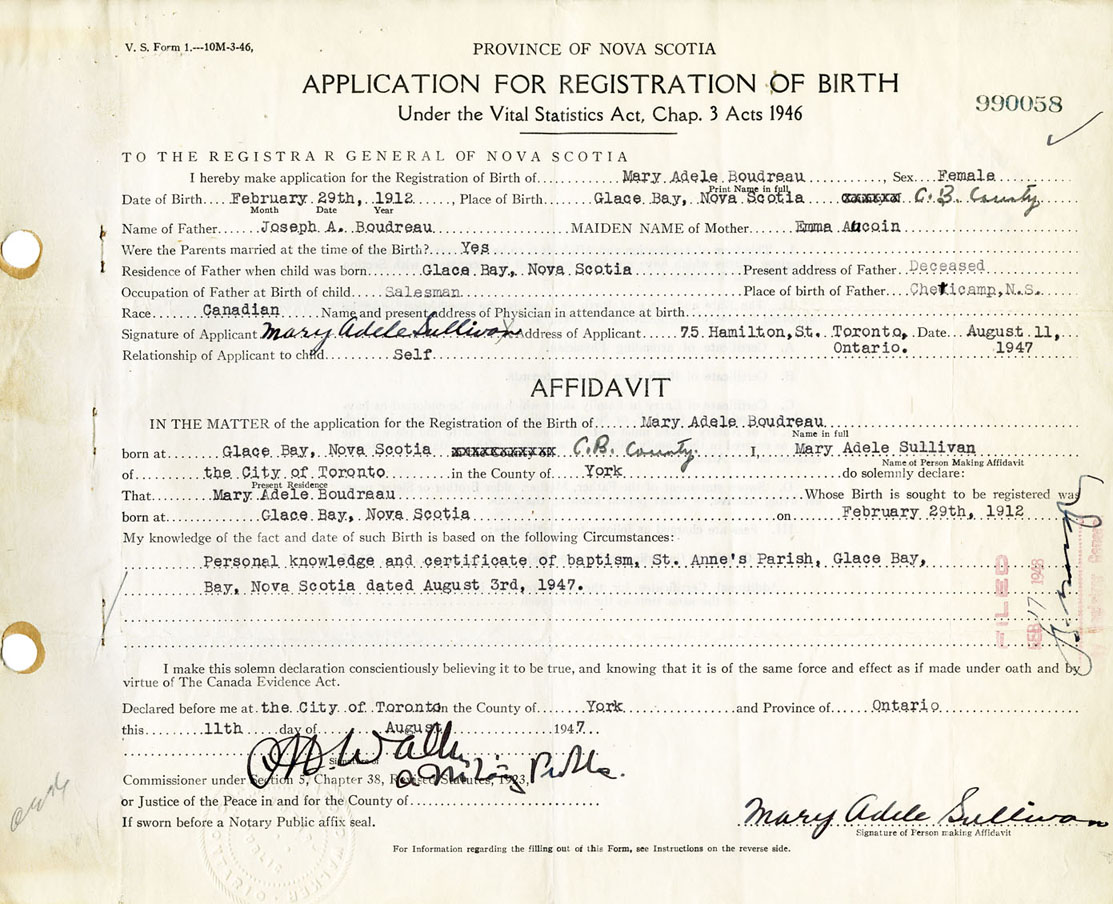 V. S. Form 1.---10M-3-46,
PROVINCE OF NOVA SCOTIA
APPLICATION FOR REGISTRATION OF BIRTH
Under the Vital Statistics Act, Chap. 3 Acts 1946
990058
TO THE REGISTRAR GENERAL OF NOVA SCOTIA
I hereby make application for the Registration of Birth of Mary Adele Boudreau, Sex Female
Print Name in full
Date of Birth February 29th, 1912, Place of Birth Glace Bay, Nova Scotia C.B. County
Month Date Year
Name of Father Joseph A. Boudreau MAIDEN NAME of Mother Emma Aucoin
Were the Parents married at the time of the Birth? Yes
Residence of Father when child was born Glace Bay, Nova Scotia Present address of Father Deceased
Occupation of Father at Birth of child Salesman Place of birth of Father Cheticamp, N.S.
Race Canadian Name and present address of Physician in attendance at birth
Signature of Applicant Mary Adele Sullivan Address of Applicant 75 Hamilton, St. Toronto, Date August 11,
Relationship of Applicant to child Self Ontario. 1947
AFFIDAVIT
IN THE MATTER of the application for the Registration of the Birth of Mary Adele Boudreau
Name in full
born at Glace Bay, Nova Scotia C.B. County. I, Mary Adele Sullivan
Name of Person Making Affidavit
of the City of Toronto in the County of York do solemnly declare:
Present Residence
That Mary Adele Boudreau Whose Birth is sought to be registered was
born at Glace Bay, Nova Scotia on February 29th, 1912
My knowledge of the fact and date of such Birth is based on the following Circumstances:
Personal knowledge and certificate of baptism, St. Anne's Parish, Glace Bay,
Bay, Nova Scotia dated August 3rd, 1947.
FILED
FEB 17 1948
I make this solemn declaration conscientiously believing it to be true, and knowing that it is of the same force and effect as if made under oath and by
virtue of The Canada Evidence Act.
Declared before me at the City of Toronto in the County of York and Province of Ontario
this 11th day of August 1947.
Signature of
a Notary Public.
Commissioner under Section 5, Chapter 38, Revised Statutes, 1923,
or Justice of the Peace in and for the County of
If sworn before a Notary Public affix seal.
Mary Adele Sullivan
Signature of Person making Affidavit
For Information regarding the filling out of this Form, see Instructions on the reverse side.